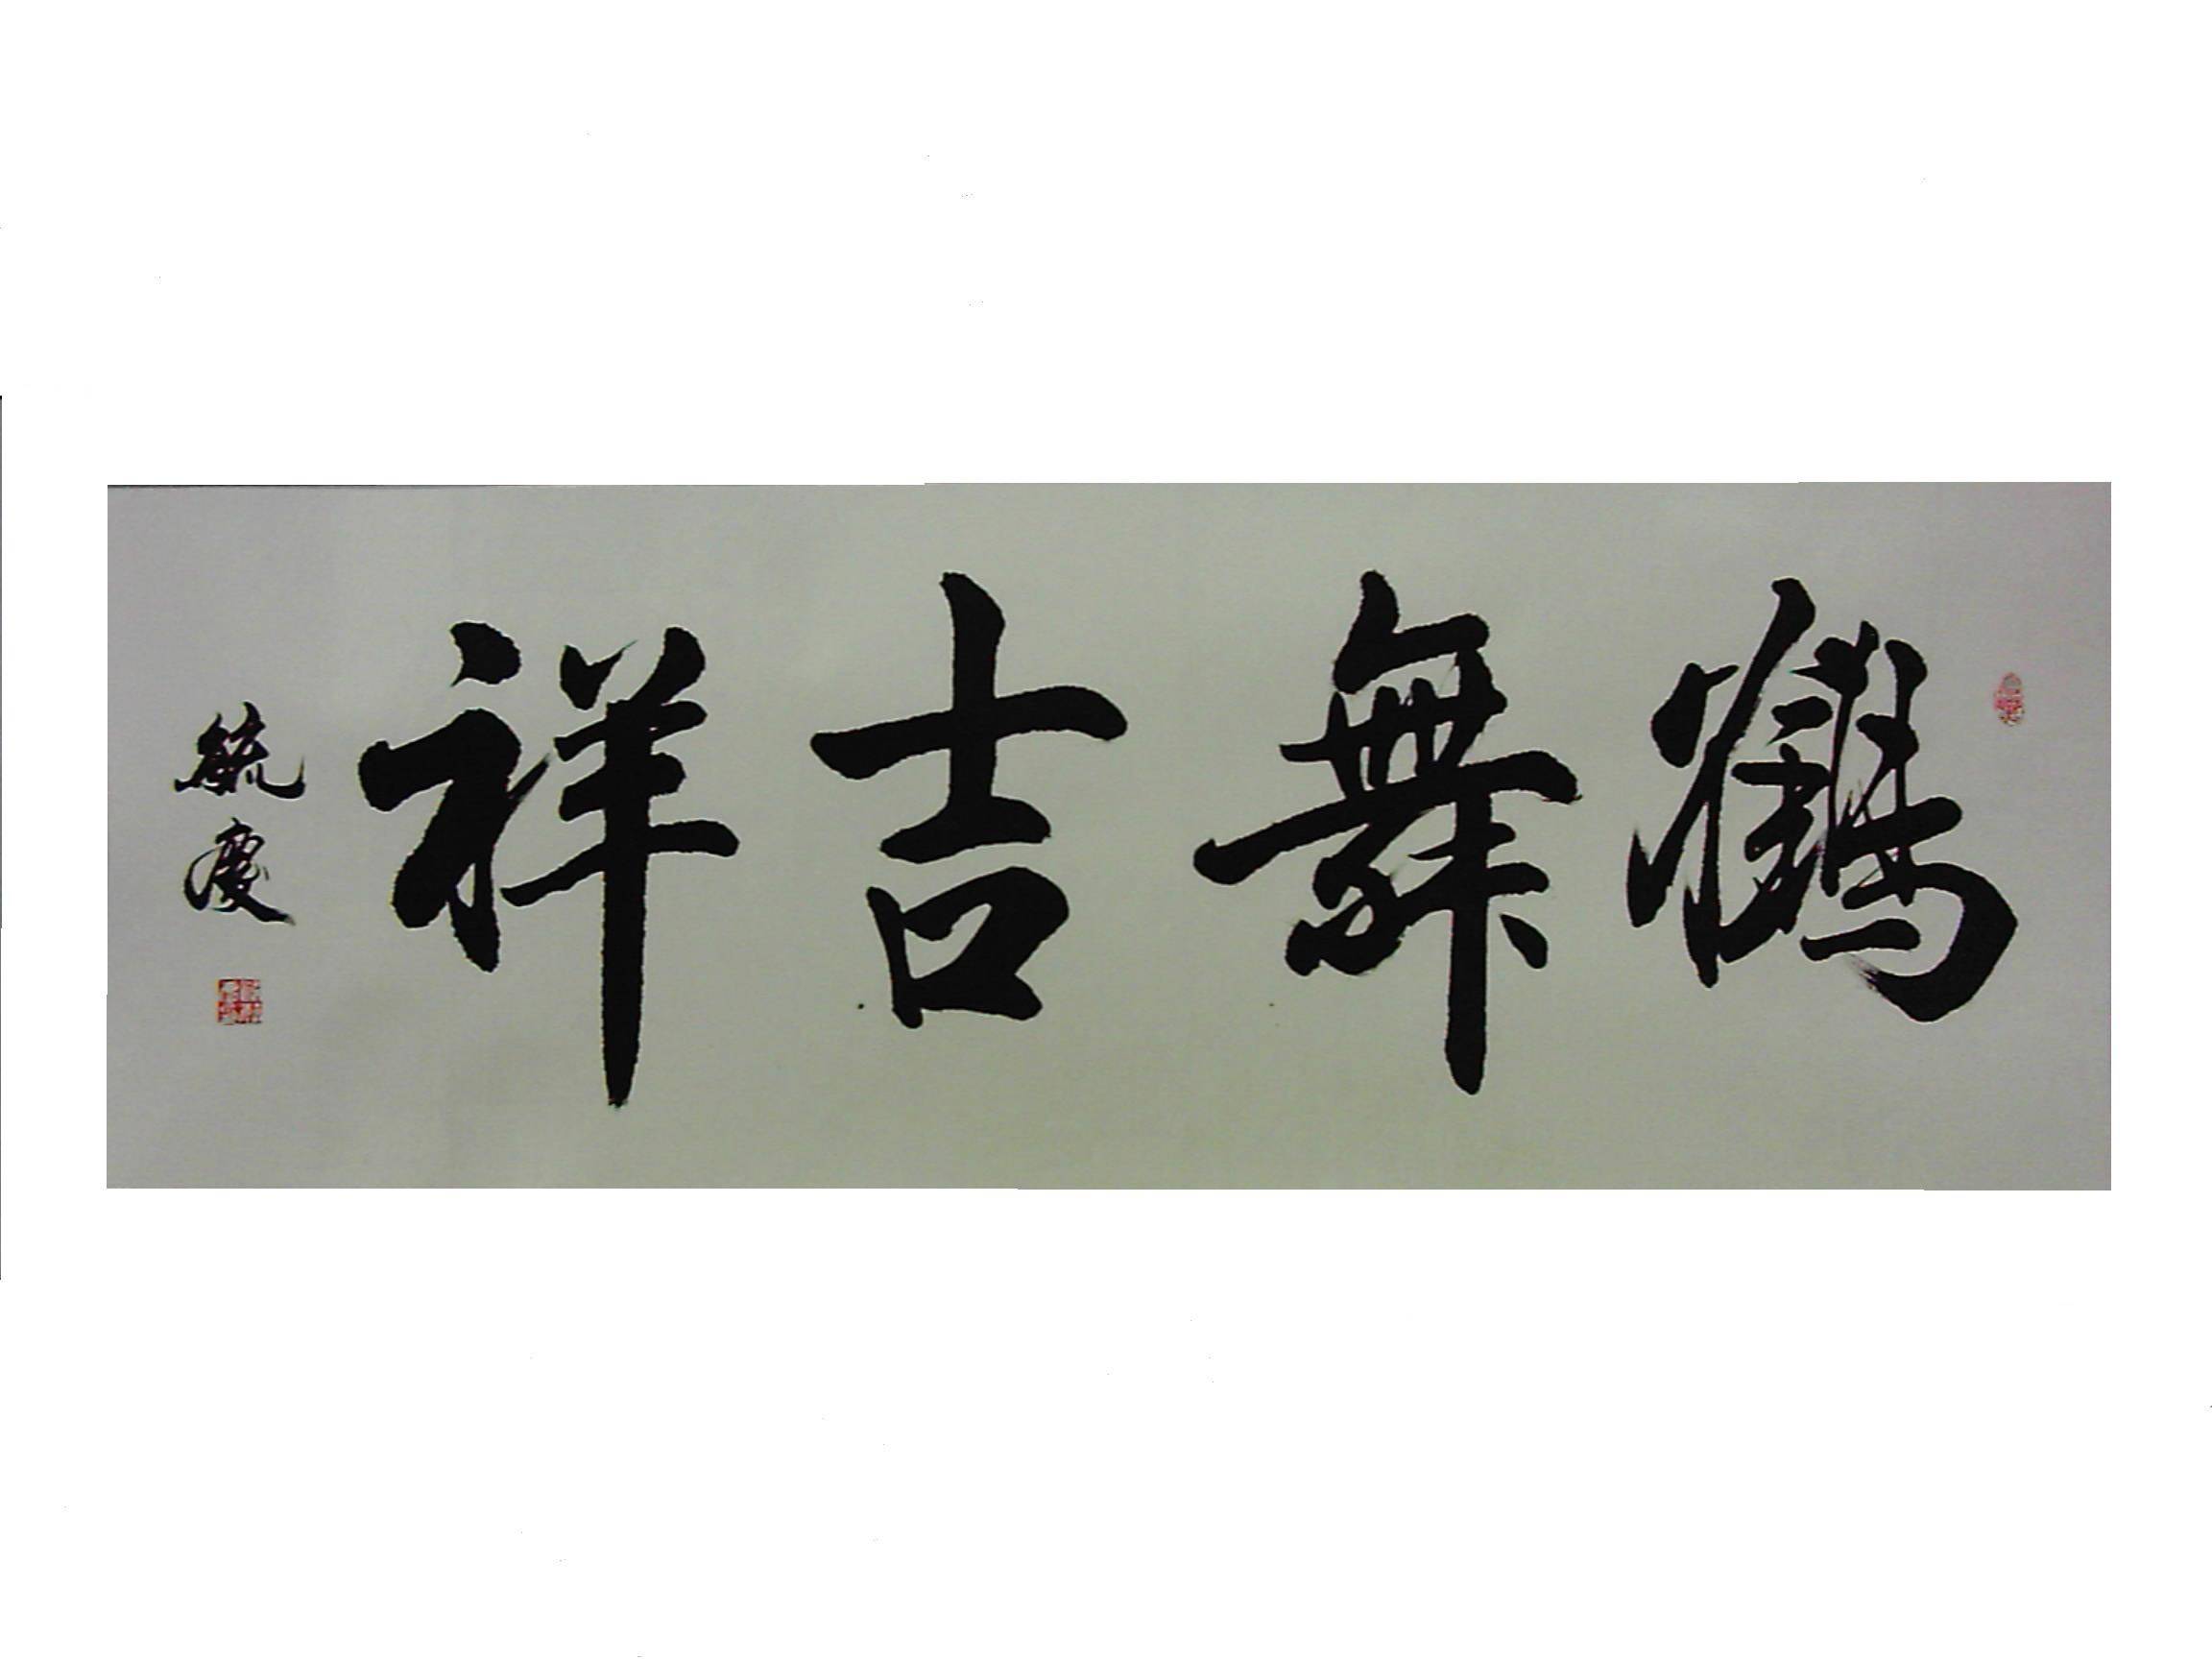 鶴舞吉祥
毓慶